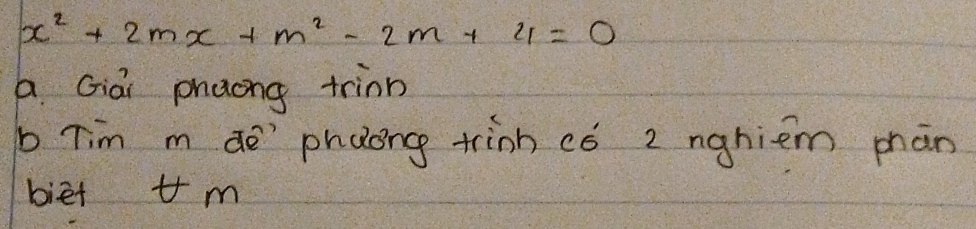 x² + 2mx + m² - 2m + 4 = 0
a. Giải phương trình
b Tìm m để phương trình có 2 nghiệm phân
biệt ∀ m